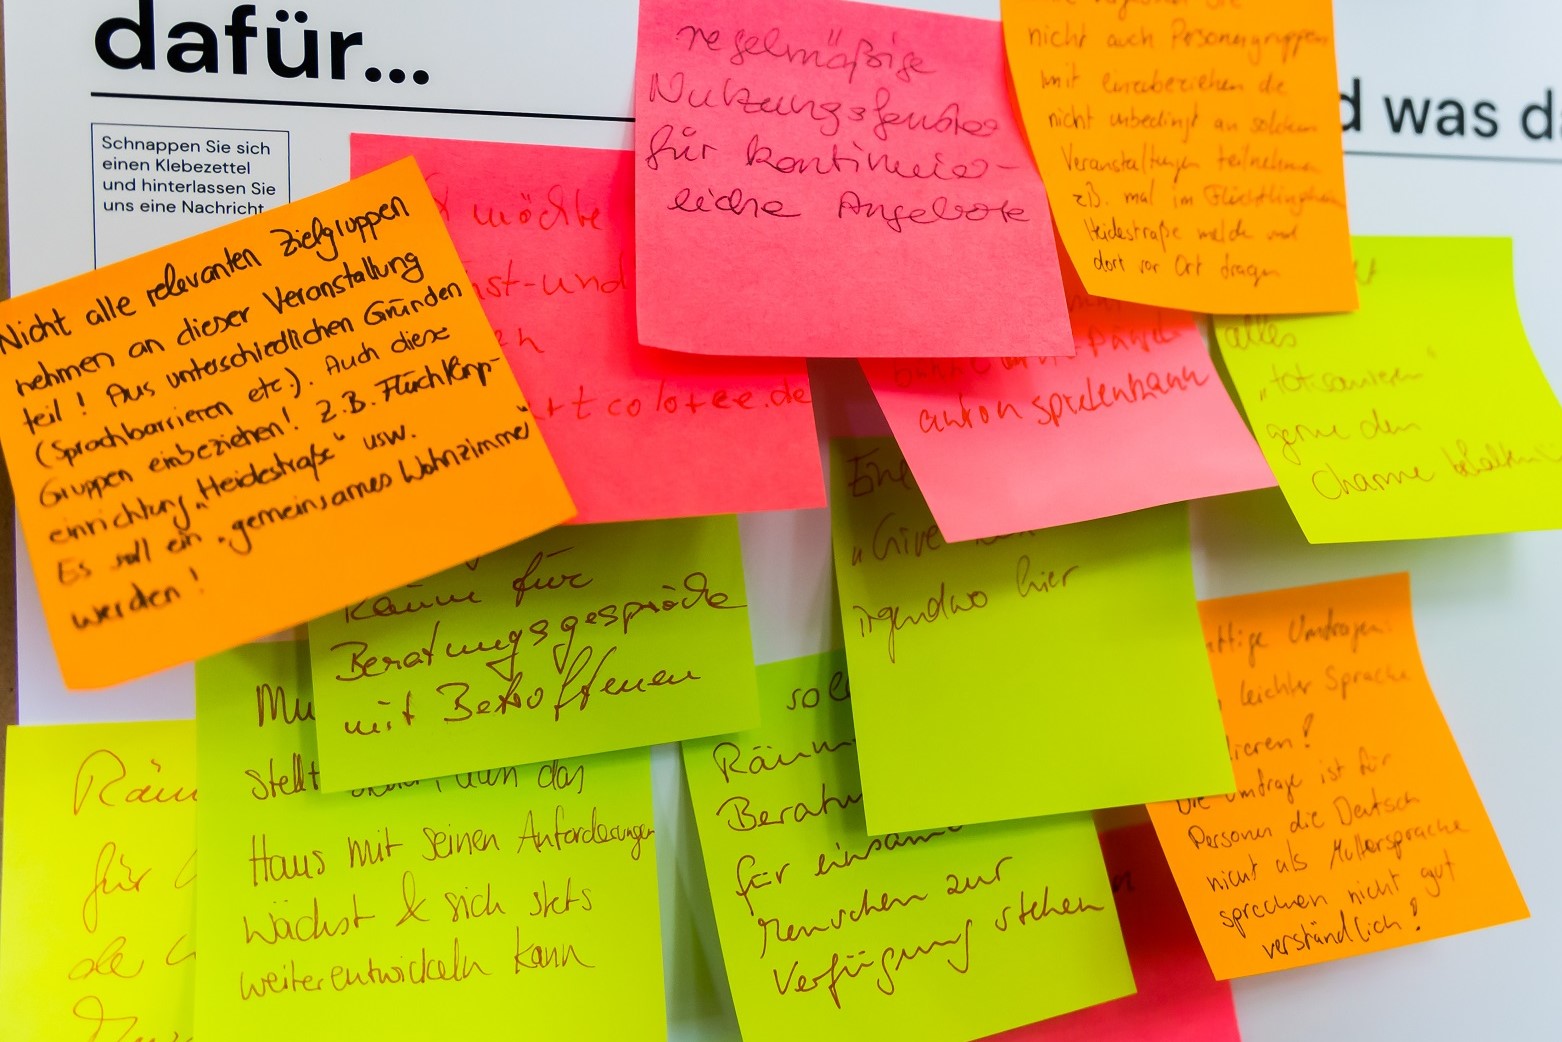 dafür...
d was d
Schnappen Sie sich
einen Klebezettel
und hinterlassen Sie
uns eine Nachricht
Nicht alle relevanten Zielgruppen
nehmen an dieser Veranstaltung
teil! Aus unterschiedlichen Gründen
(Sprachbarrieren etc.). Auch diese
Gruppen einbeziehen! z.B.
einrichtung „Heidestraße" usw.
Es soll ein „gemeinsames Wohnzimmer"
werden!
möchte
st-und
h
rtcoloree.de
regelmäßige
Nutzungsfenster
für kontinuier-
liche Angebote
nicht auch Personengruppen
mit einzubeziehen die
nicht unbedingt an solchen
Veranstaltungen teilnehmen
z.B. mal im
Heidestraße melde und
dort vor Ort fragen
anton spielenhann
alles
„totsanieren"
gerne den
Charme
Raum für
Beratungsgespräche
mit Betroffenen
Eine
„Give Box
irgendwo hier
Räum
für
Mu
stellt dann, dann das
Haus mit seinen Anforderungen
wächst & sich stets
weiterentwickeln kann
soll
Räum
Beratu
für einsame
Menschen zur
Verfügung stehen
ftige Umfragen
leichter Sprache
ieren!
Die Umfrage ist für
Personen die Deutsch
nicht als Muttersprache
sprechen nicht gut
verständlich!